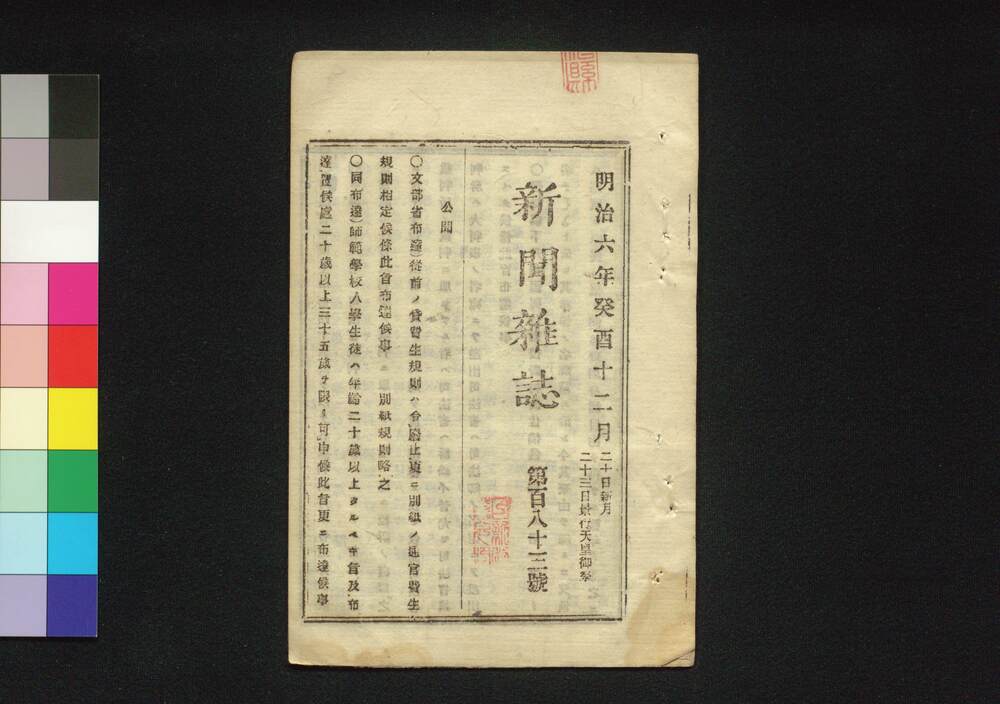 明治六年癸酉十二月
二十日新月
二十三日景行天皇御祭
新聞雜誌
第百八十三號
公聞
〇文部省布達)從前ノ貸費生規則ハ令廢止更ニ別紙ノ通官費生
規則相定候條此旨布達候事 別紙規則略之
〇同布達)師範學校入學生徒ハ年齡二十歲以上タルヘキ旨及布
達置候處二十歲以上三十五歲ヲ限リ可申候此旨更ニ布達候事